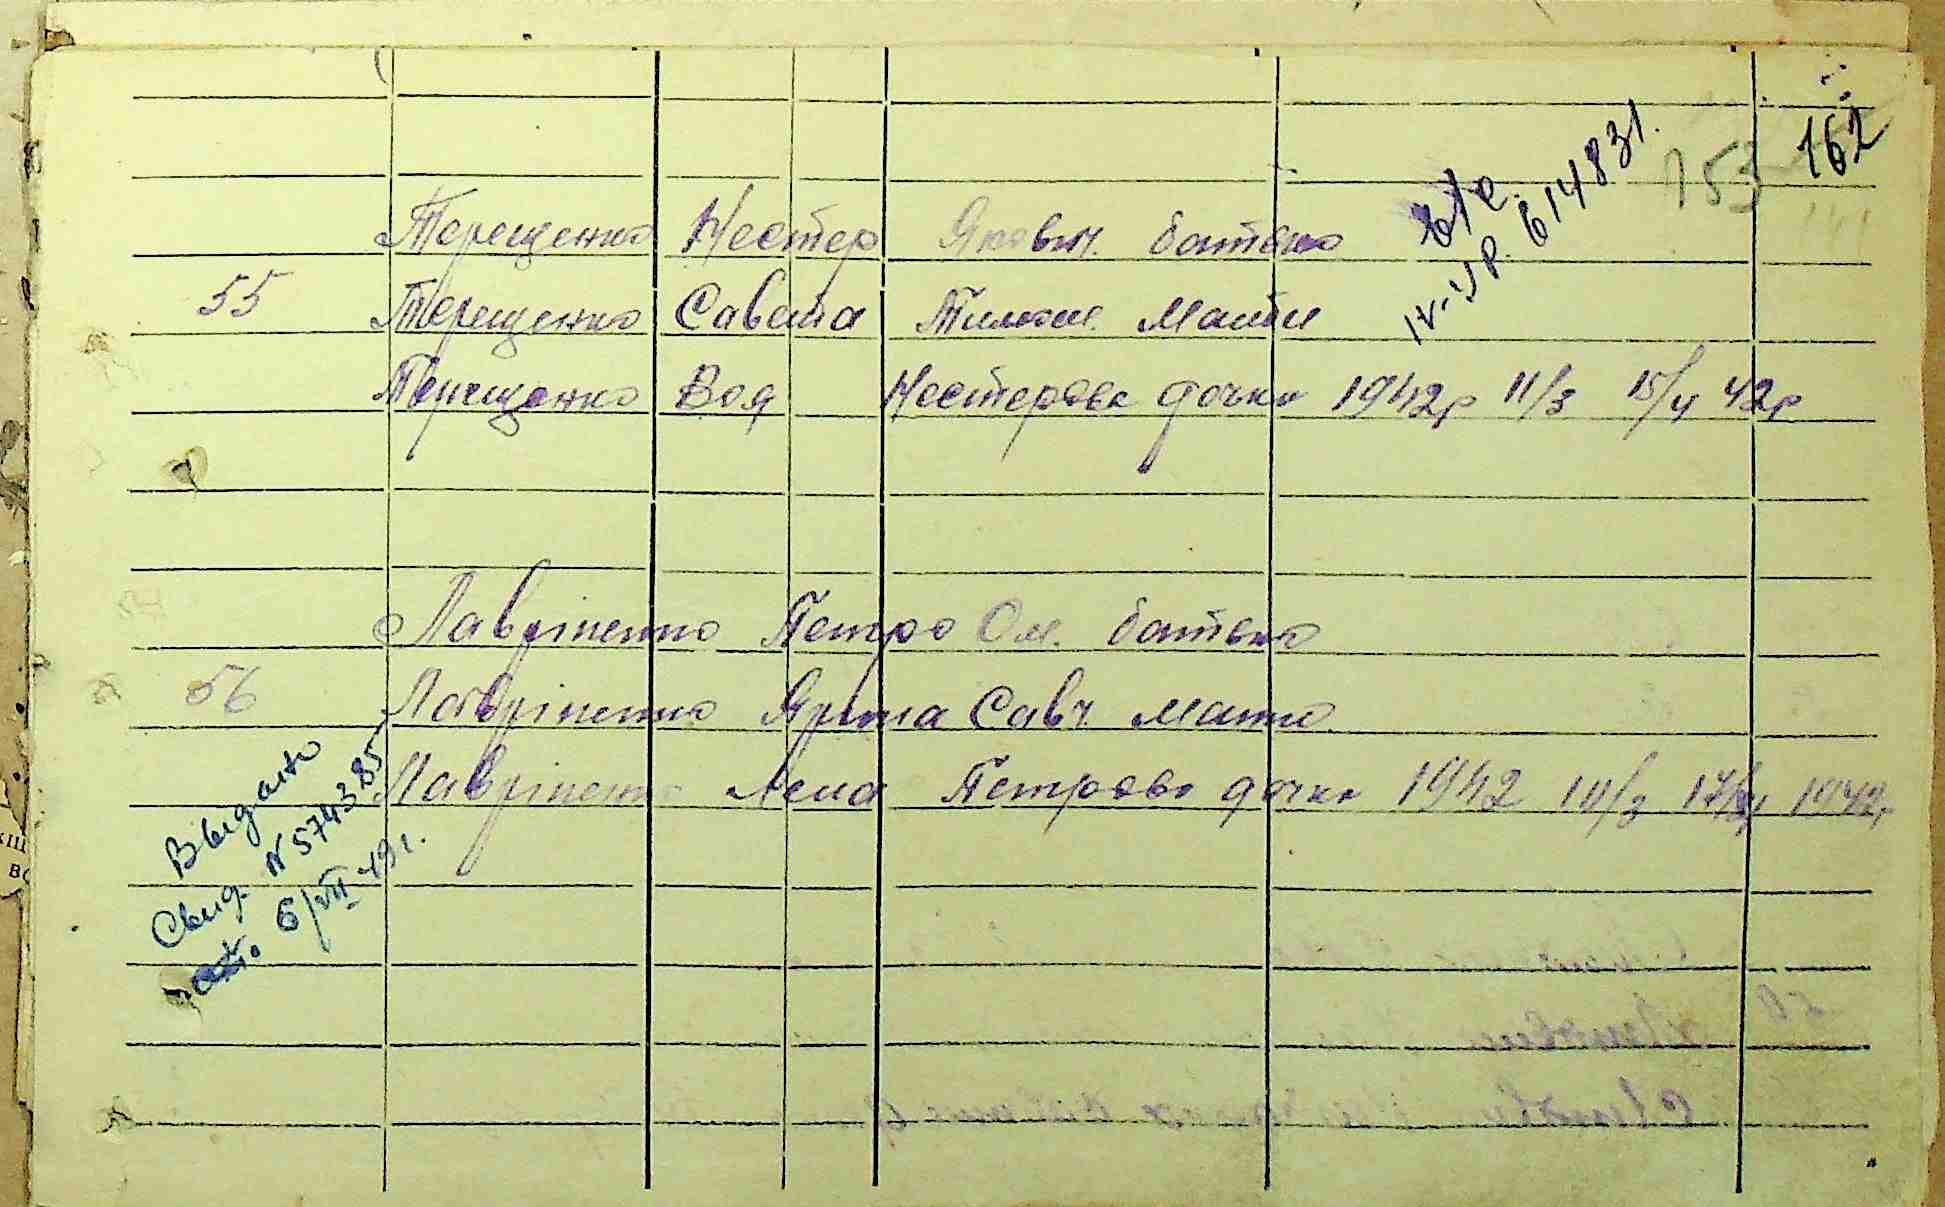 162
153
в/с
IV-УР. 614831.
Терещенко Нестер Якович. батько
55 Терещенко Савета Тимош. Мати
Терещенко Зоя Нестерова дочка 1942р 11/3 15/4 42р
Лавріненко Петро Ом. батько
56 Лавріненко Ярина Савч матко
Лавріненко Лена Петрова дочка 1942 10/3 17/4 1942р
Выдано
Свид. N 574385
6/VII-49г.